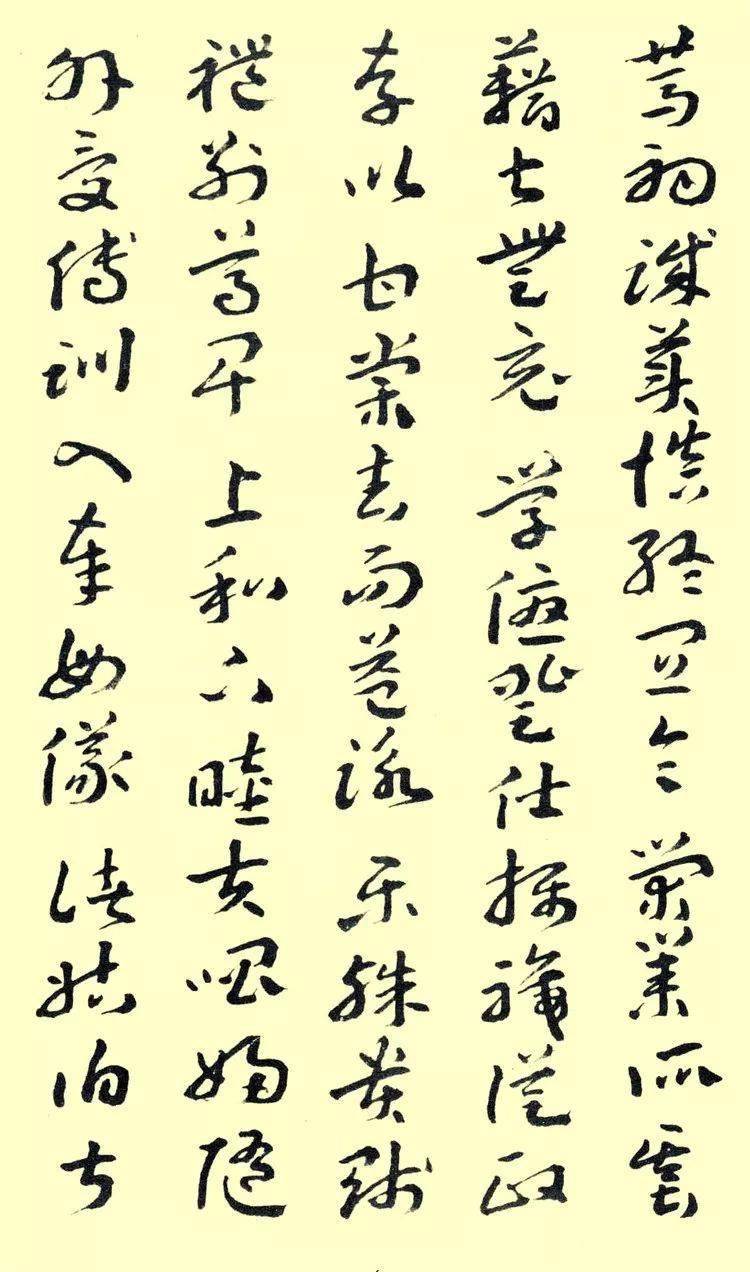 篤初誠美慎終宜令榮業所基
籍甚無竟學優登仕攝職從政
存以甘棠去而益詠樂殊貴賤
禮別尊卑上和下睦夫唱婦隨
外受傅訓入奉母儀諸姑伯叔